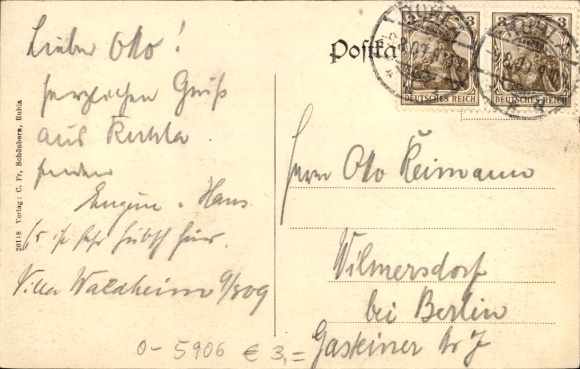 Lieber Otto!
herzlichen Gruß
aus Ruhla
senden
Eugen u. Hans
Es ist sehr hübsch hier.
Villa Waldheim 9/8 09
20148 Verlag: C. Fr. Schönhorn, Ruhla
Postka
3 3
RUHLA RUHLA
DEUTSCHES REICH DEUTSCHES REICH
Herrn Otto Reimann
Wilmersdorf
bei Berlin
Gasteiner Str 7
0-5906 € 3,=